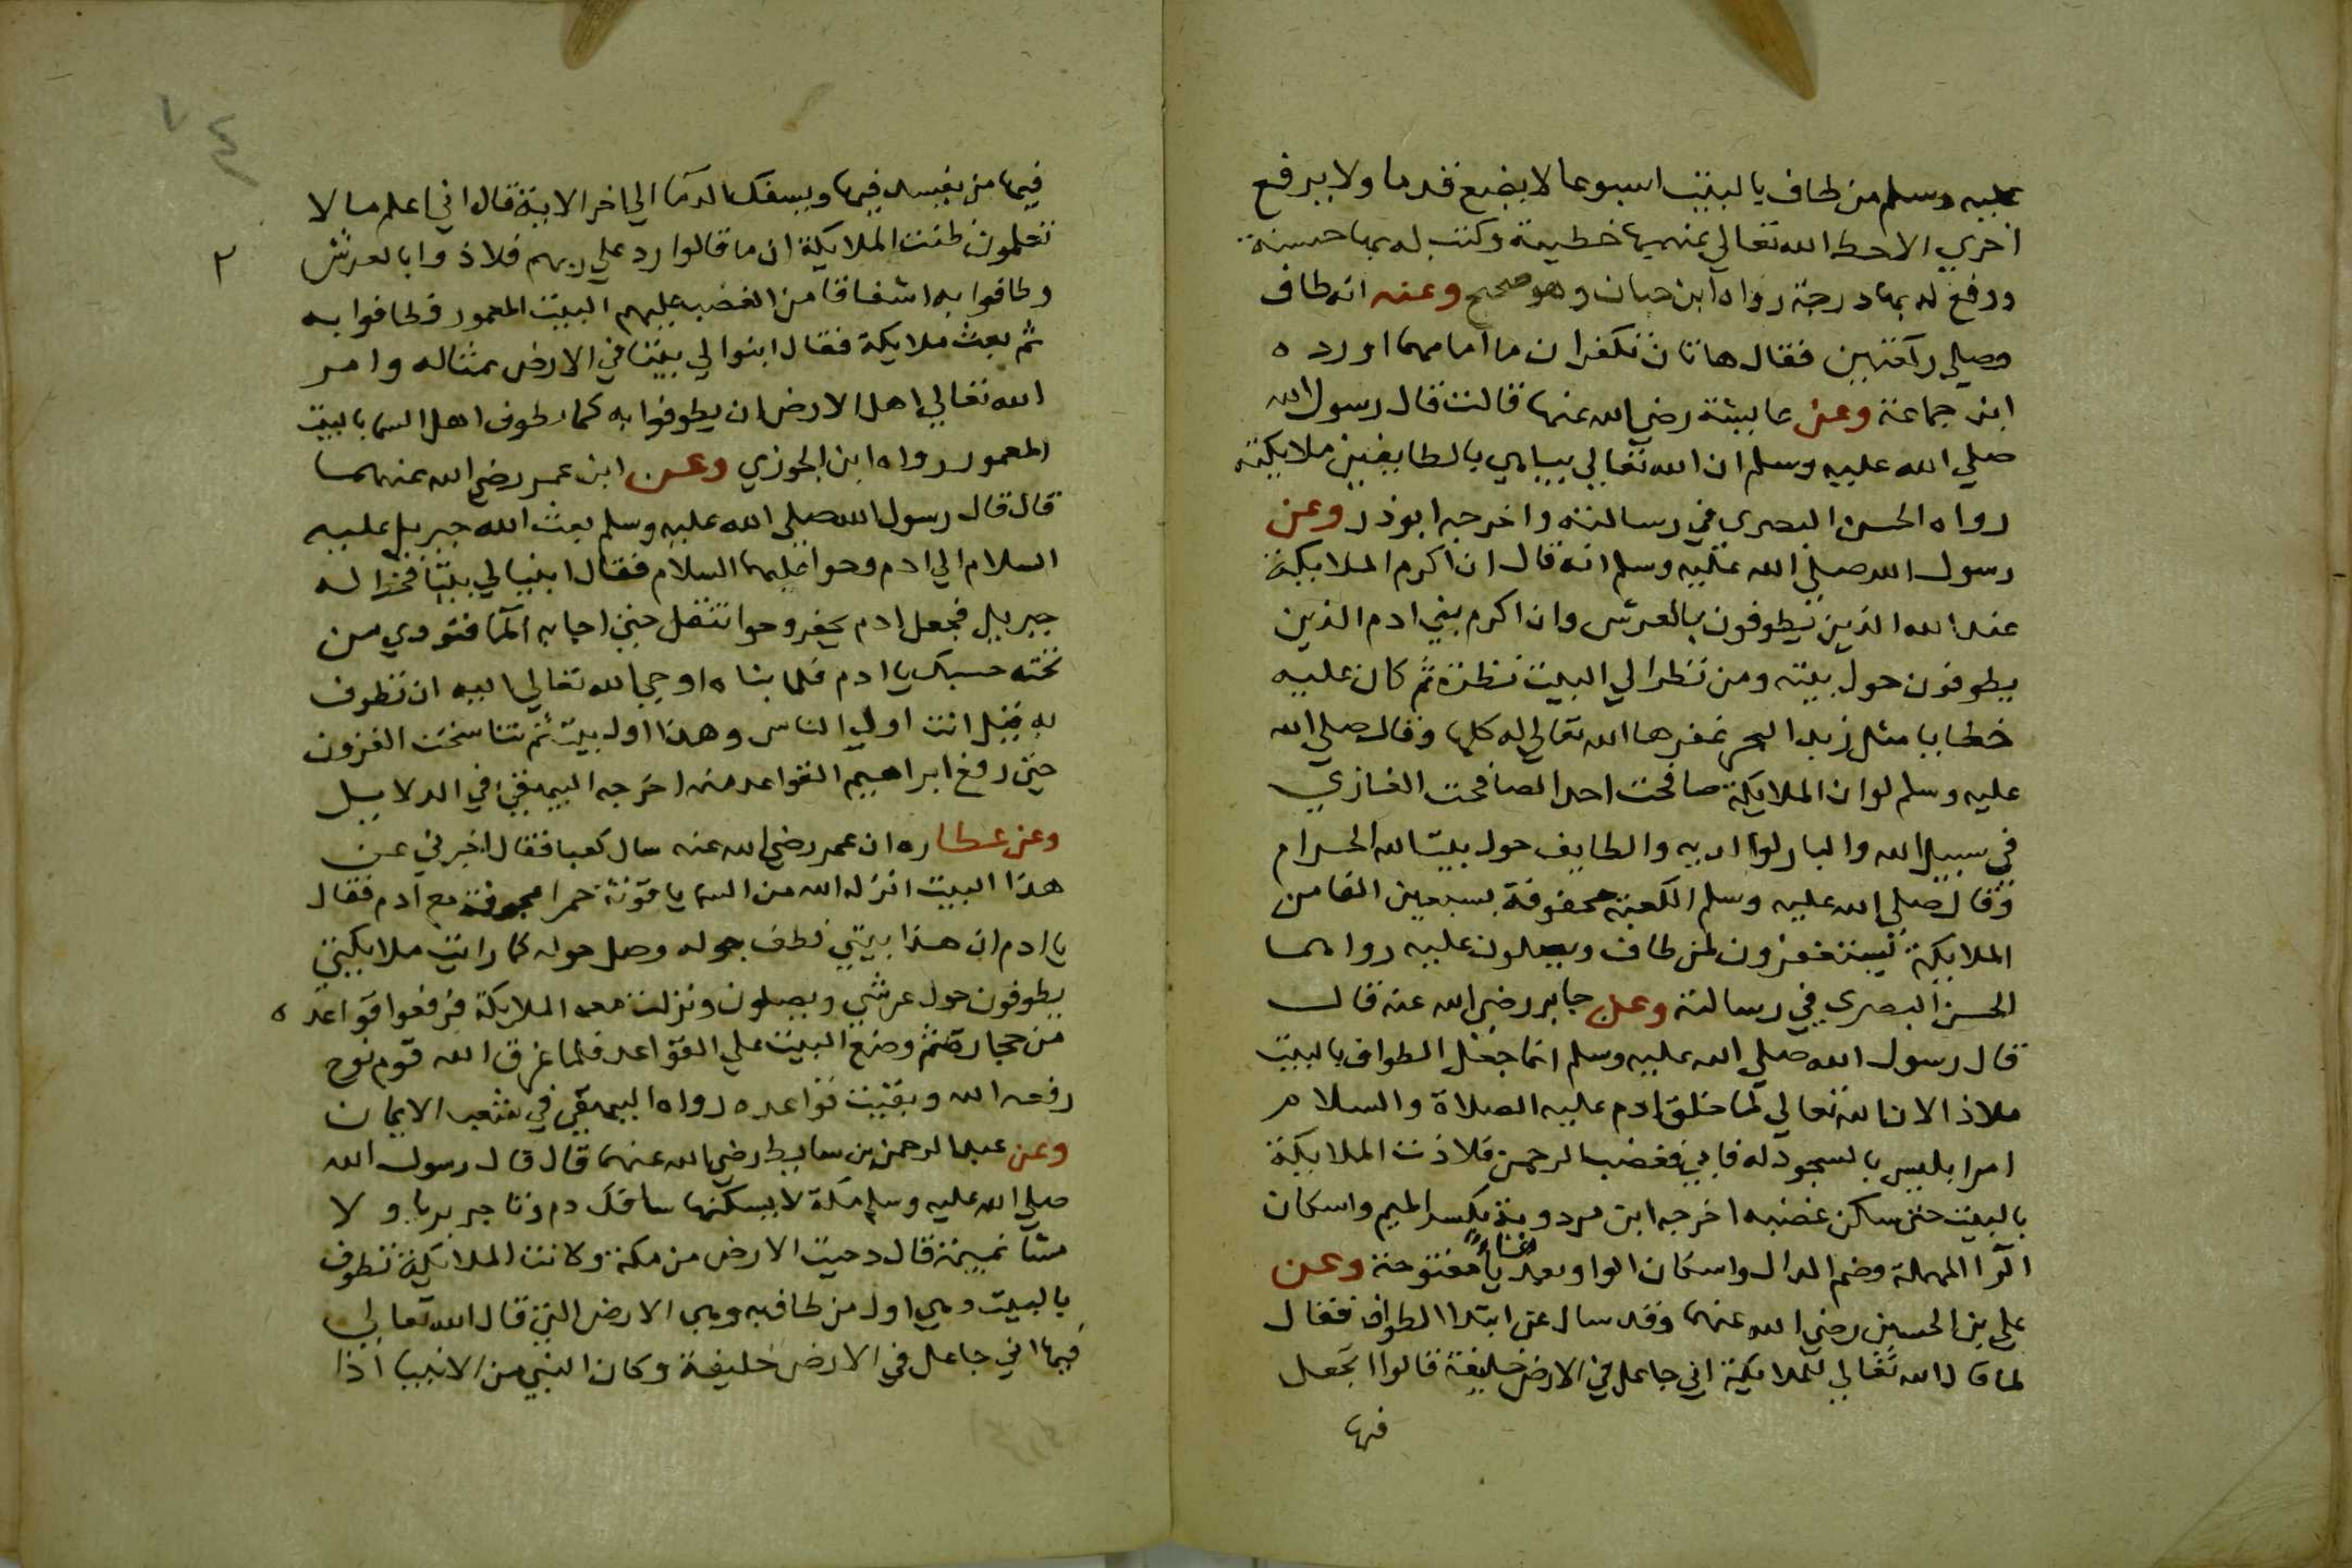 عليه وسلم من طاف بالبيت اسبوعا لا يضع قدما ولا يرفع
اخري الاحط الله تعالي عنه بها خطيئة وكتب له بها حسنة
ورفع له بها درجة رواه ابن حبان وهو صحيح وعنه انه طاف
وصلي ركعتين فقال هاتان تكفران ما امامهما اورده
ابن جماعة وعن عايشة رضي الله عنها قالت قال رسول الله
صلي الله عليه وسلم ان الله تعالي يباهي بالطايفين ملايكته
رواه الحسن البصري في رسالته واخرجه ابوذر وعن
رسول الله صلي الله عليه وسلم انه قال ان اكرم الملايكة
عند الله الذين يطوفون بالعرش وان اكرم بني ادم الذين
يطوفون حول بيته ومن نظر الي البيت نظرة ثم كان عليه
خطايا مثل زبد البحر غفرها الله تعالي له كلها وقال صلي الله
عليه وسلم لو ان الملايكة صافحت احدا لصافحت الغازي
في سبيل الله والبار لوالديه والطايف حول بيت الله الحرام
وقال صلي الله عليه وسلم الكعبة محفوفة بسبعين الفا من
الملايكة يستغفرون لمن طاف ويصلون عليه رواهما
الحسن البصري في رسالته وعن جابر رضي الله عنه قال
قال رسول الله صلي الله عليه وسلم انما جعل الطواف بالبيت
ملاذ الان الله تعالي لما خلق ادم عليه الصلاة والسلام
امر ابليس بالسجود له فابي فغضب الرحمن فلاذت الملايكة
بالبيت حتي سكن غضبه اخرجه ابن مردويه بكسر الميم واسكان
الرا المهملة وضم الدال واسكان الواو وبعد يا مفتوحة وعن
علي بن الحسين رضي الله عنهما وقد سال عن ابتدا الطواف فقال
لما قال الله تعالي للملايكة اني جاعل في الارض خليفة قالوا اتجعل
فيها
فيها من يفسد فيها ويسفك الدما الي اخر الاية قال اني اعلم ما لا
تعلمون ظنت الملايكة ان ما قالوا رد علي ربهم فلاذوا بالعرش
وطافوا به اشفاقا من الغضب عليهم البيت المعمور فطافوا به
ثم بعث ملايكة فقال ابنوا لي بيتا في الارض بمثاله وامر
الله تعالي اهل الارض ان يطوفوا به كما يطوف اهل السما بالبيت
المعمور رواه ابن الجوزي وعن ابن عمر رضي الله عنهما
قال قال رسول الله صلي الله عليه وسلم بعث الله جبريل عليه
السلام الي ادم وحوا عليهما السلام فقال ابنيا لي بيتا فخط له
جبريل فجعل ادم يحفر وحوا تنقل حتي اجابه الما فنودي من
تحته حسبك يا ادم فلما بناه اوحي الله تعالي اليه ان تطوف
به قيل انت اول الناس وهذا اول بيت ثم تناسخت القرون
حتي رفع ابراهيم القواعد منه اخرجه البيهقي في الدلايل
وعن عطا ره ان عمر رضي الله عنه سال كعبا فقال اخبرني عن
هذا البيت انزله الله من السما ياقوتة حمرا مجوفة مع ادم فقال
يا ادم ان هذا بيتي فطف حوله وصل حوله كما رايت ملايكتي
يطوفون حول عرشي ويصلون ونزلت معه الملايكة فرفعوا قواعده
من حجارة ثم وضع البيت علي القواعد فلما غرق الله قوم نوح
رفعه الله وبقيت قواعده رواه البيهقي في شعب الايمان
وعن عبد الرحمن بن سابط رضي الله عنهما قال قال رسول الله
صلي الله عليه وسلم مكة لا يسكنها سافك دم ولا تاجر بربا ولا
مشا نميمة قال دحيت الارض من مكة وكانت الملايكة تطوف
بالبيت وهي اول من طاف به وهي الارض التي قال الله تعالي
فيها اني جاعل في الارض خليفة وكان النبي من الانبيا اذا